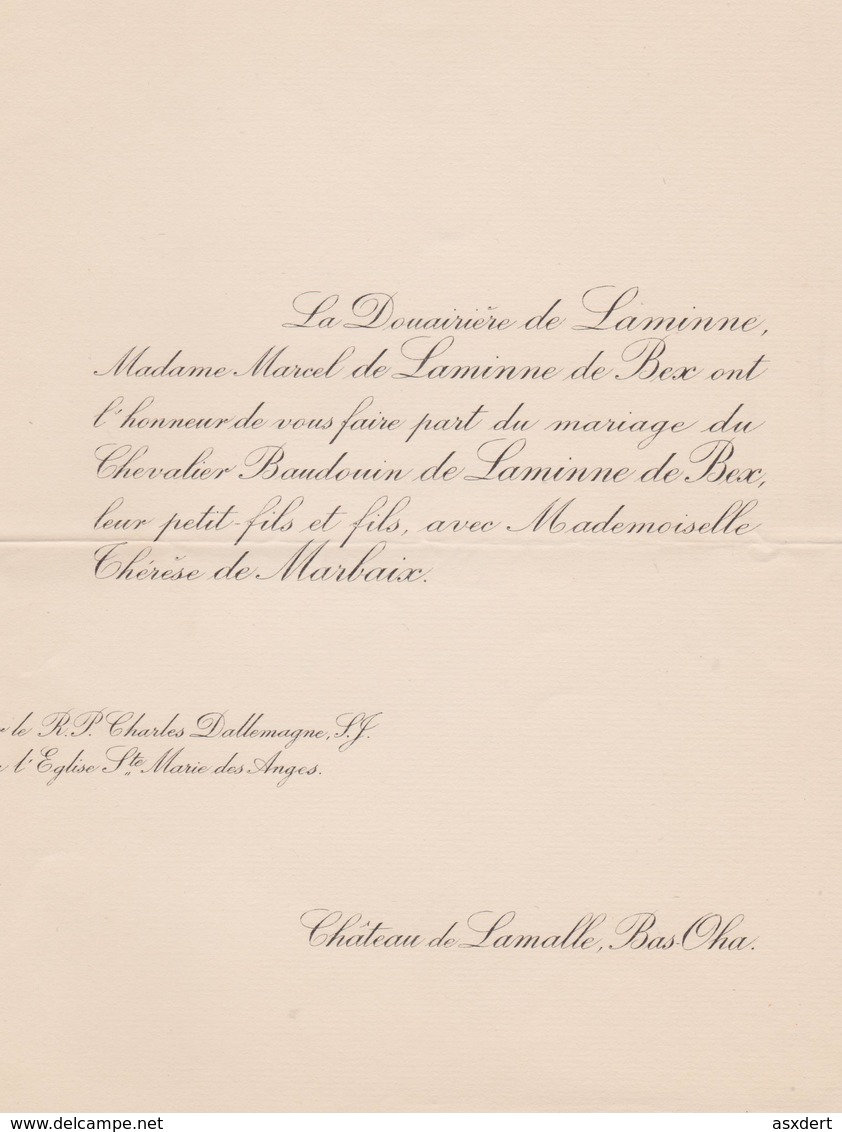 La Douairière de Laminne,
Madame Marcel de Laminne de Bex ont
l'honneur de vous faire part du mariage du
Chevalier Baudouin de Laminne de Bex,
leur petit-fils et fils, avec Mademoiselle
Thérèse de Marbaix.
le R.P. Charles Dallemagne, S.J.
l'Eglise Ste Marie des Anges.
Château de Lamalle, Bas-Oha.
www.delcampe.net
asxdert